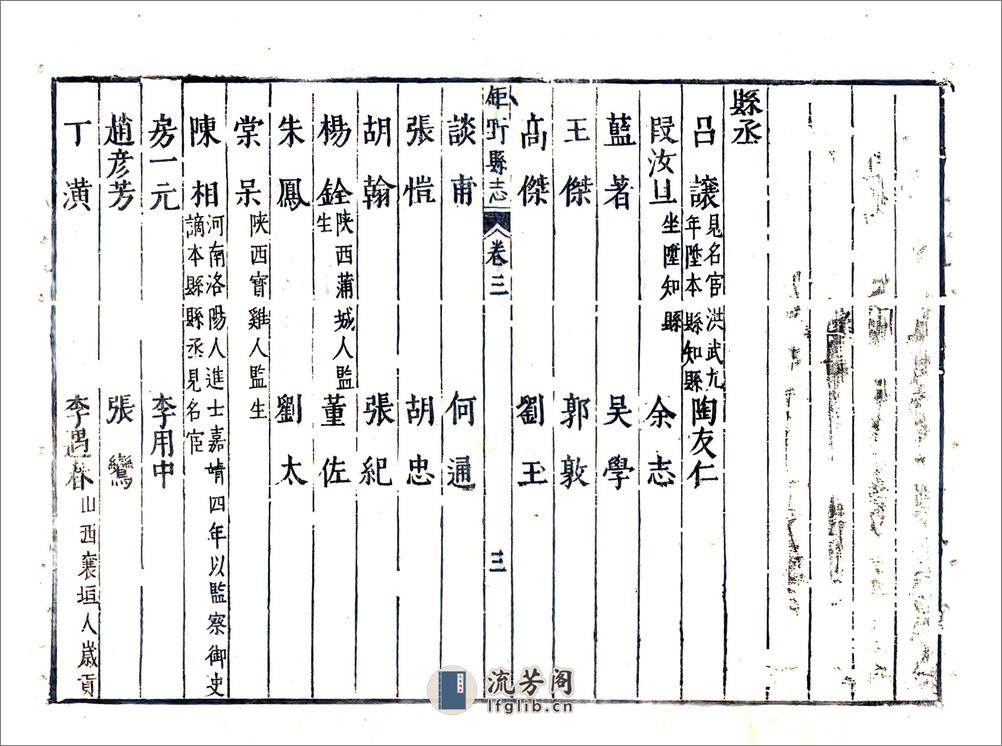 縣丞
呂讓 見名宦洪武九年陞本縣知縣 陶友仁
段汝旦 坐陞知縣 余志
藍著 吳學
王傑 郭敦
高傑 劉玉
鉅野縣志 卷三 三
談甫 何通
張愷 胡忠
胡翰 張紀
楊銓 陝西蒲城人監生 董佐
朱鳳 劉太
棠杲 陝西寶雞人監生
陳相 河南洛陽人進士嘉靖四年以監察御史謫本縣縣丞見名宦
房一元 李用中
趙彥芳 張鸞
丁潢 李遇春 山西襄垣人歲貢
流芳阁
lfglib.cn